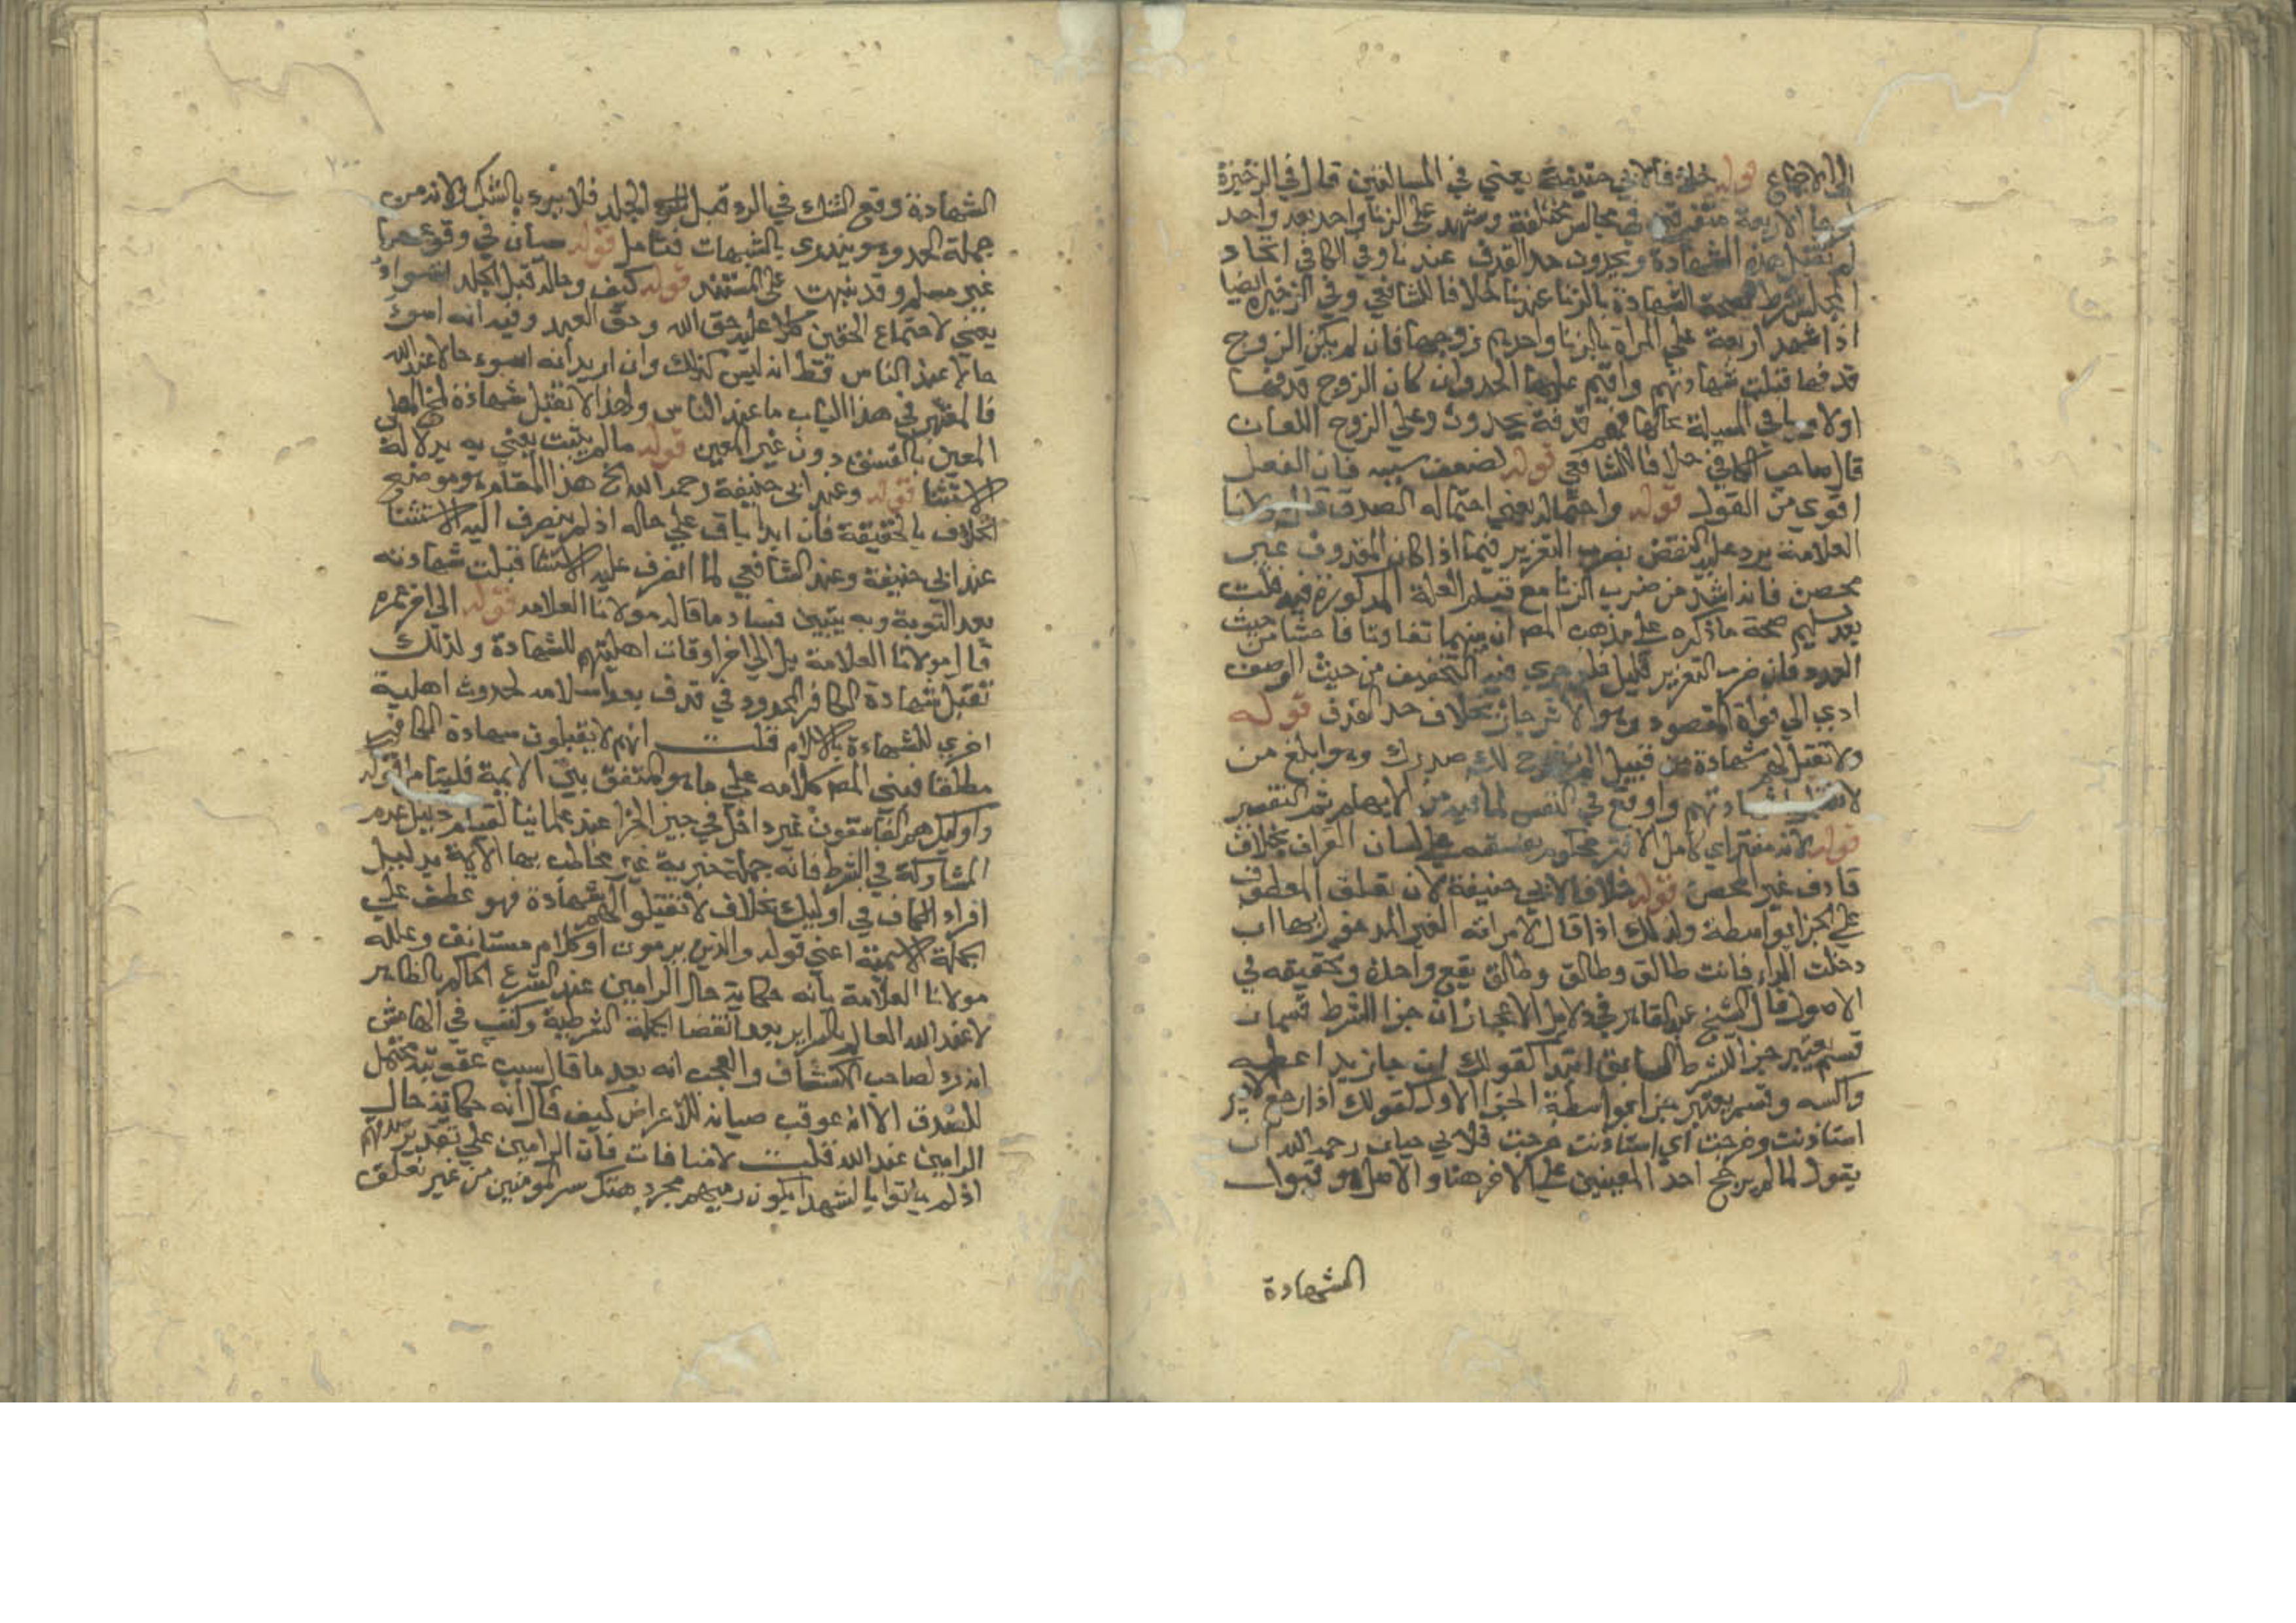 الى الاجماع قوله خلافا لابي حنيفة يعني في المسالتين قال في الذخيرة
الاربعة متفرقين في مجالس مختلفة وشهد على الزنا واحد بعد واحد
لم تقبل هذه الشهادة ويحدون حد القذف عندنا وفي الكافي اتحاد
المجلس شرط لصحة الشهادة بالزنا عندنا خلافا للشافعي وفي الذخيرة ايضا
اذا شهد اربعة على المراة بالزنا واحدهم زوجها فان لم يكن الزوج
قدفها قبلت شهادتهم واقيم عليها الحد وان كان الزوج قدفها
اولا وباقي المسالة بحالها فهم قدفة يحدون وعلى الزوج اللعان
قال صاحب الكافي خلافا للشافعي قوله لضعف سببه فان الفعل
اقوي من القول قوله واحتماله يعني احتماله الصدق قال مولانا
العلامة يرد عليه النقض بضرب التعزير فيما اذا كان المقدوف غير
محصن فانه اشد من ضرب الزنا مع قيام العلة المدكورة فيه قلت
بعد تسليم صحة ما ذكره على مذهب المص ان بينهما تفاوتا فاحشا من حيث
العدد فان ضرب التعزير قليل فلو جري فيه التخفيف من حيث الوصف
ادي الي فواة المقصود وهو الانزجار بخلاف حد القذف قوله
ولا تقبل لهم شهادة من قبيل الم نشرح لك صدرك وهو ابلغ من
لا تقبل شهادتهم واوقع في النفس لما فيه من الابهام ثم التفسير
قوله لانه مفتر اي كامل الافتر محكوم بفسقه على لسان القران بخلاف
قادف غير المحصن قوله خلافا لابي حنيفة لان تعلق المعطوف
على الجزا بواسطة ولذلك اذا قال لامراته الغير المدخول بها ان
دخلت الدار فانت طالق وطالق وطالق يقع واحدة وتحقيقه في
الاصول قال الشيخ عبد القاهر في دلايل الاعجاز ان جزا الشرط قسمان
قسم يعتبر جزا للشرط السابق ابتدا كقولك ان جا زيد اعطه
واكسه وقسم يعتبر جزا بواسطة الجزا الاول كقولك اذا رجع الامير
استاذنت وخرجت اي استاذنت خرجت فلابي حيان رحمه الله ان
يقول لما لم يرجح احد المعنيين على الاخر هنا والاصل هو قبول
الشهادة
الشهادة وقع الشك في الرد قبل الجلد فلا يرد بالشك ولانه من
جملة الحد وهو يندري بالشبهات فتامل قوله سيان في وقوعهما
غير مسلم وقد نبهت على المستند قوله كيف وحاله قبل الجلد اسوا
يعني لاجتماع الحقين عليه حق الله وحق العبد وفيه انه اسوء
حالا عند الناس فقط انه ليس كذلك وان اريد انه اسوء حالا عند الله
فالمعتبر في هذا الباب ما عند الناس ولهذا لا تقبل شهادة
المعين بالفسق دون غير المعين قوله ما لم يتب يعني به يدلالة
الاستثنا قوله وعند ابي حنيفة رحمه الله الخ هذا المقام هو موضع
الخلاف بالحقيقة فان ابدا باق على حاله اذ لم ينصرف اليه الاستثنا
عند ابي حنيفة وعند الشافعي لما انصرف عليه الاستثنا قبلت شهادته
بعد التوبة وبه يتبين فساد ما قاله مولانا العلامه قوله الى اخر عمره
قال مولانا العلامة بل الي اخر اوقات اهليتهم للشهادة ولذلك
تقبل شهادة الكافر المحدود في قدف بعد اسلامه لحدوث اهلية
اخري للشهادة بالاسلام قلت انهم لا يقبلون شهادة الكافر
مطلقا فبني المص كلامه علي ما هو المتفق بين الايمة فليتامل قوله
واوليك هم الفاسقون غير داخل في حيز الجزا عند علمائنا لقيام دليل عدم
المشاركة في الشرط فانه جملة خبرية غير مخاطب بها الايمة بدليل
افراد الكاف في اوليك بخلاف لا تقبلوا لهم شهادة فهو عطف على
الجملة الاسمية اعني قوله والذين يرمون او كلام مستانف وعلله
مولانا العلامة بانه حكاية حال الرامين عند الشرع الحاكم بالظاهر
لا عند الله العالم بالسراير بعد انقضا الجملة الشرطية وكتب في الهامش
انه رد لصاحب الكشاف والعجب انه بعد ما قال سبب عقوبته محتمل
للصدق الا انه عوقب صيانة للاعراض كيف قال انه حكاية حال
الرامين عند الله قلت لا منافات فان الرامين علي تقدير صدقهم
اذ لم ياتوا بالشهدا يكون رميهم مجرد هتك ستر المومنين من غير تعلق